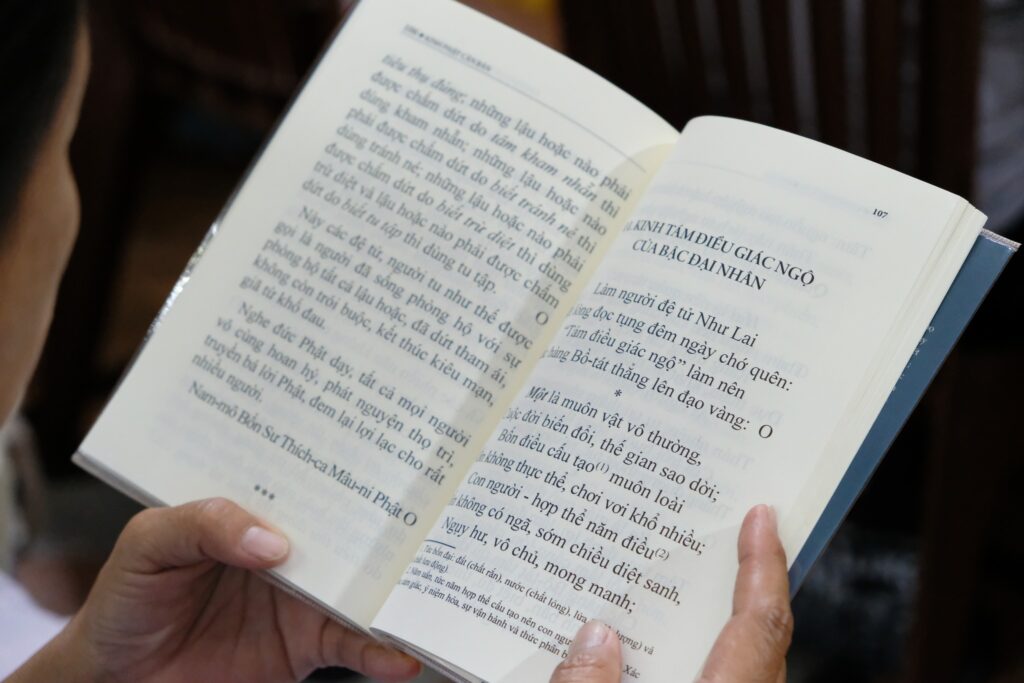 106 • KINH PHẬT CĂN BẢN
tiêu thụ đúng; những lậu hoặc nào phải
được chấm dứt do tâm kham nhẫn thì
dùng kham nhẫn; những lậu hoặc nào
phải được chấm dứt do biết tránh né thì
dùng tránh né; những lậu hoặc nào phải
được chấm dứt do biết trừ diệt thì dùng
trừ diệt và lậu hoặc nào phải được chấm
dứt do biết tu tập thì dùng tu tập. O
Này các đệ tử, người tu như thế được
gọi là người đã sống phòng hộ với sự
phòng hộ tất cả lậu hoặc, đã dứt tham ái,
không còn trói buộc, kết thúc kiêu mạn,
giã từ khổ đau.
Nghe đức Phật dạy, tất cả mọi người
vô cùng hoan hỷ, phát nguyện thọ trì,
truyền bá lời Phật, đem lại lợi lạc cho rất
nhiều người.
Nam-mô Bổn Sư Thích-ca Mâu-ni Phật O
***
107
KINH TÁM ĐIỀU GIÁC NGỘ
CỦA BẬC ĐẠI NHÂN
Làm người đệ tử Như Lai
lòng đọc tụng đêm ngày chớ quên:
"Tám điều giác ngộ" làm nên
hàng Bồ-tát thẳng lên đạo vàng: O
*
Một là muôn vật vô thường,
đời biến đổi, thế gian sao dời;
Bốn điều cấu tạo(1) muôn loài
không thực thể, chơi vơi khổ nhiều;
Con người - hợp thể năm điều(2)
không có ngã, sớm chiều diệt sanh,
Ngụy hư, vô chủ, mong manh;
Tức bốn đại: đất (chất rắn), nước (chất lỏng), lửa và
lưu động).
Năm uẩn, tức năm hợp thể cấu tạo nên con
giác, ý niệm hóa, sự vận hành và thức phân Xác